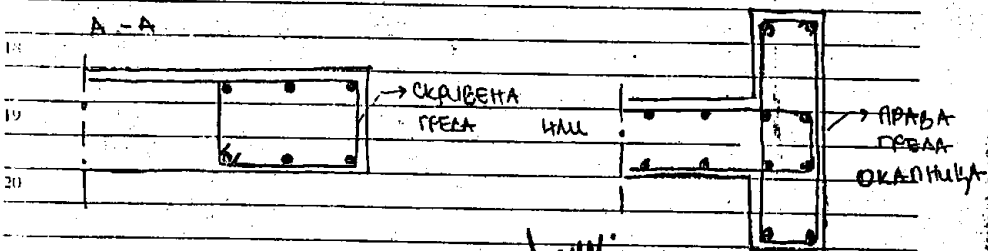 A-A
18
→ СКРИВЕНА
19
ГРЕДА ИЛИ
→ ПРАВА
ГРЕДА
ОКАПНИЦА
20